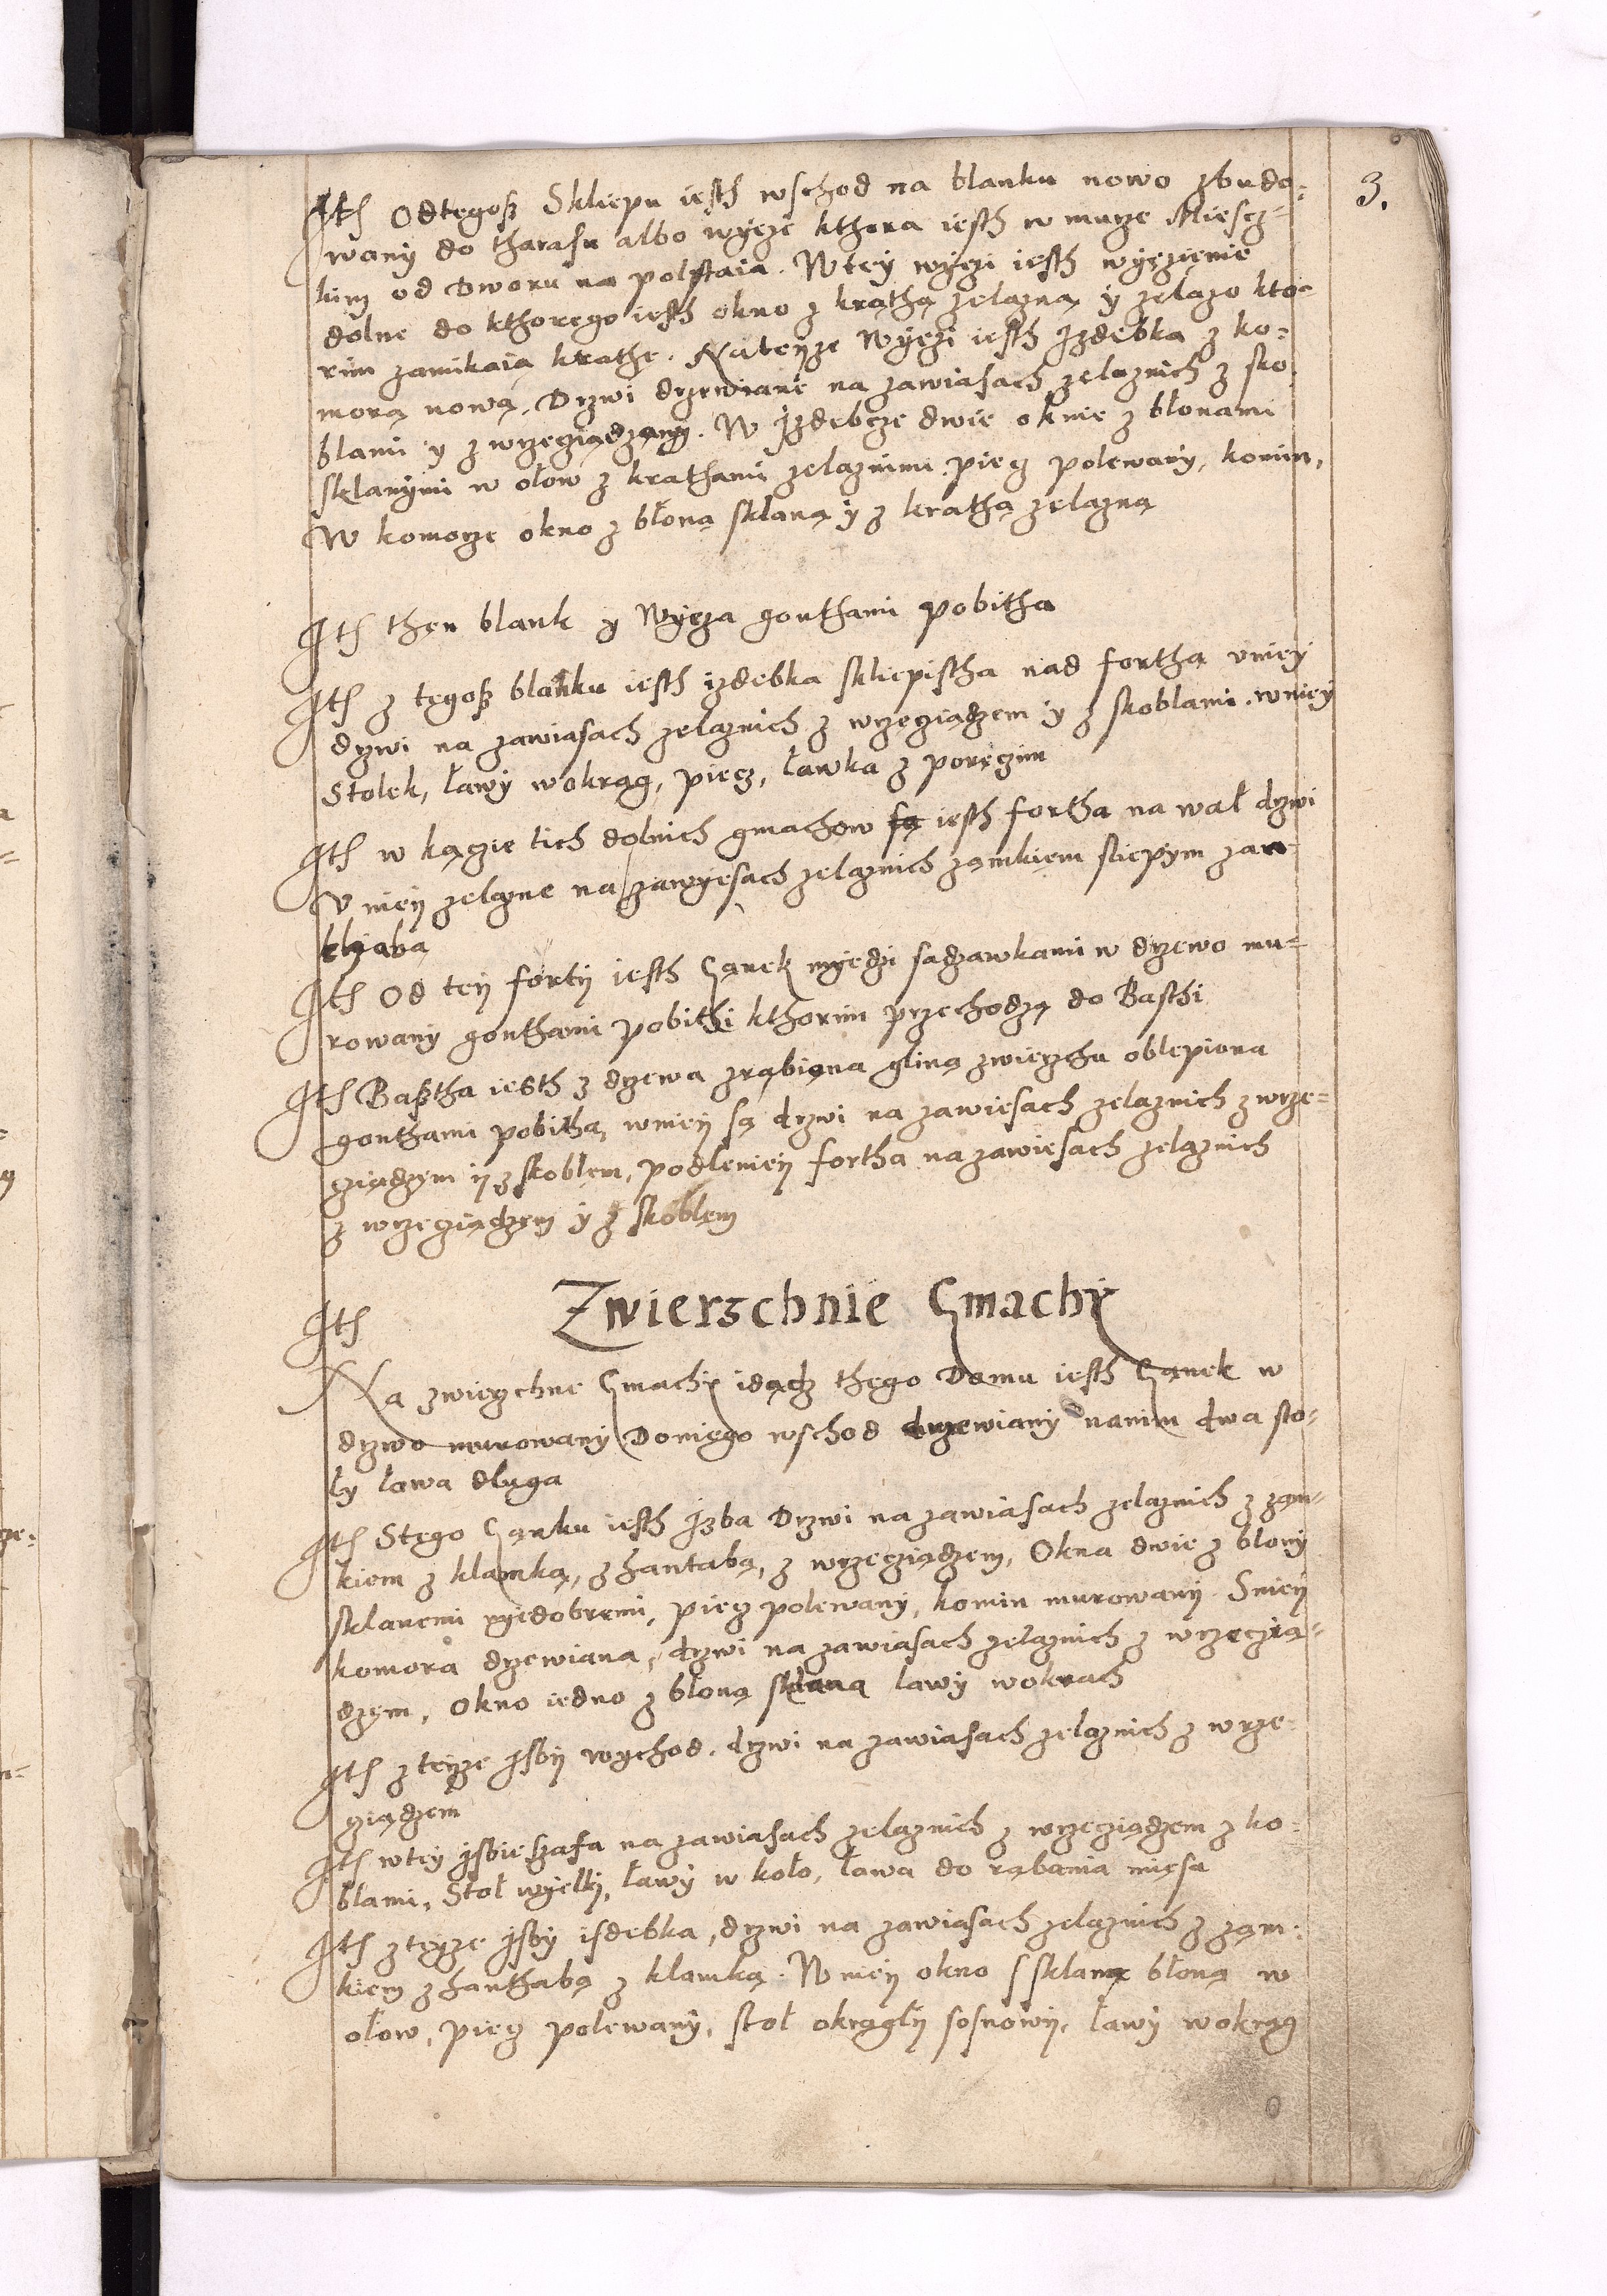 3.
Ith Odtegoß Skliepu iesth wschod na blanku nowo zbudo-
wany do tharasu albo wyeże kthora iesth w murze Miescz-
kim od Dworu na polstaia. W tey wyezi iesth wyęzienie
dolne do kthorego iesth okno z krathą zelazną y zelazo kto-
rim zamikaią krathe. Nateyze Wyezi iesth Izdebka z ko-
morą nową. Drzwi drzewiane na zawiasach zelaznich z sko-
blami y z wrzeciądzamy. W Izdebcze dwie oknie z błonami
sklanymi w ołow z krathami zelaznimi piecz polewany, komin,
W komorze okno z błoną skłaną y z krathą zelazną
Ith then blank y Wyeza gonthami pobitha
Ith z tegoß blanku iesth izdebka skliepistha nad forthą vniey
drzwi na zawiasach zelaznich z wrzeciądzem y z skoblami. wniey
Stolek, ławy wokrąg, piecz, ławka z poręczim
Ith w kączie tich dolnich gmachow są iesth fortha na wał drzwi
V niey zelazne na zawyesach zelaznich zamkiem sliepym zan-
klyaba
Ith Od tey forty iesth Ganek myedzi sadzawkami w drzewo mu-
rowany gonthami pobithi kthorim przechodzą do Basthi
Ith Baßtha iesth z drzewa zrąbiona gliną zwierzchu oblepiona
gonthami pobitha, wniey są drzwi na zawiesach zelaznich z wrze-
cziądzym y z skoblem, podleniey fortha na zawiesach zelaznich
z wrzecziądzem y z skoblem
Zwierzchnie Gmachy
Ith
Na zwierzchne Gmachy idącz thego Domu iesth Ganek w
drzwo murowany Doniego wschod drzewiany nanim dwa sto-
ly lawa długa
Ith Stego Ganku iesth Izba Drzwi na zawiasach zelaznich z zam-
kiem z klamką, z hantabą, z wrzecziądzem, Okna dwie z blony
sklanemi nyedobremi, piecz polewany, komin murowany Sniey
komora drzewiana, drzwi na zawiasach zelaznich z wrzeczią-
dzem, Okno iedno z bloną skłaną lawy wokrach
Ith z teyze Isby wychod. drzwi na zawiasach zelaznich z wrze-
cziądzem
Ith wtey Isbie szafa na zawiasach zelaznich z wrzecziądzem z ko-
blami, Stoł wyelki, ławy w koło, ława do rąbania mięsa
Ith z teyze Isby isdebka, drzwi na zawiasach zelaznich z zam-
kiem z hanthabą z klamką. W niey okno s sklaną błoną w
ołow, piecz polewany, stoł okrągły sosnowy, ławy wokrąg